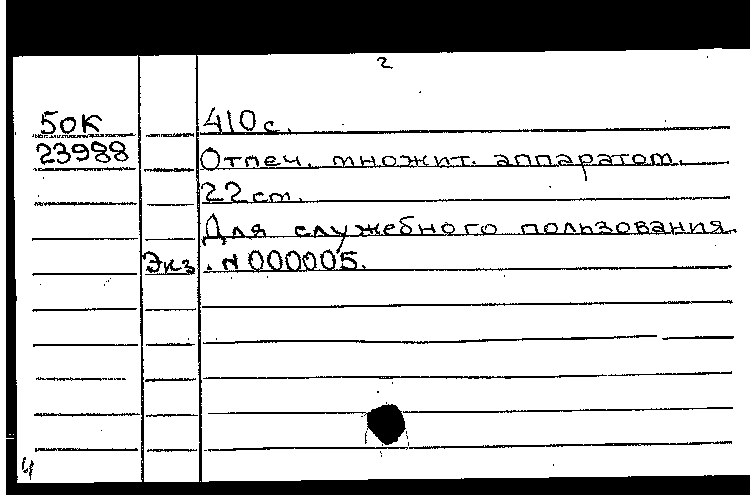 2
50К 410 с.
23988 Отпеч. множит. аппаратом.
22 cm.
Для служебного пользования.
Экз. N 000005.
4